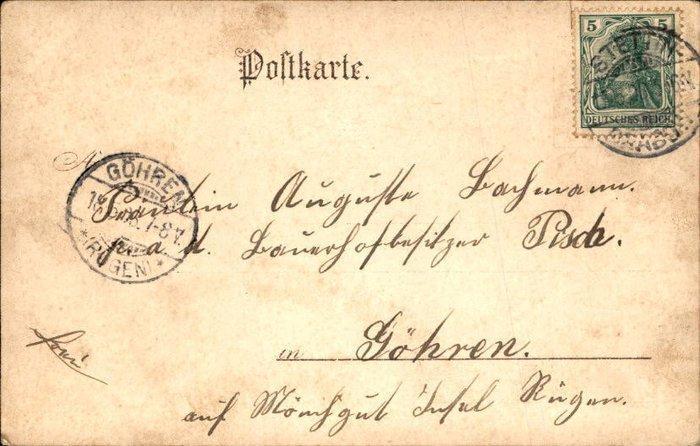 Postkarte.
5 5
DEUTSCHES REICH
STETTIN
GÖHREN
7-8V.
*(RÜGEN)*
Fräulein Auguste Bachmann.
p. a. d. Bauerhofbesitzer Pisch.
in Göhren.
auf Mönchgut Insel Rügen.